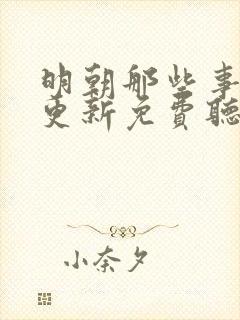 明朝那些事
更新免費聽
小奈夕